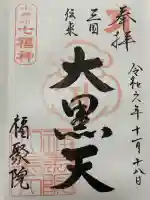 奉拝
令和六年十一月十八日
三国
伝来
大黒天
七福神
福聚院